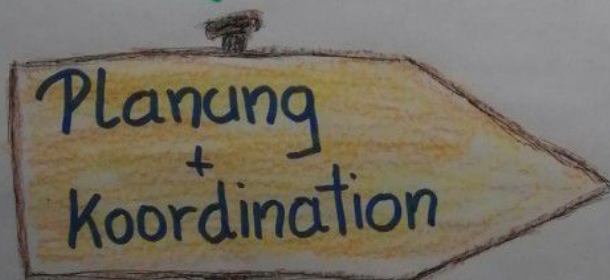 Planung
+
Koordination